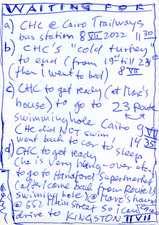 WAITING FOR
a) CHC @ Cairo Trailways
bus station 8 VII 2022 11 30
b) CHC's "cold turkey"
to end (from 19th till 23
then I went to bed) 8 VII
c) CHC to get ready (at Marc's
house) to go to 23 Route
swimming hole Cairo 9 VII
CHC did NOT swim
went back to car to sleep 14 35
d) CHC to get ready
(he is very hung-over, etc.
to go to Hannaford Supermarket
(after I came back from Route 23
swimming hole) @ Marc's house
@ 552 Main Street so I can
drive to KINGSTON 11 VII